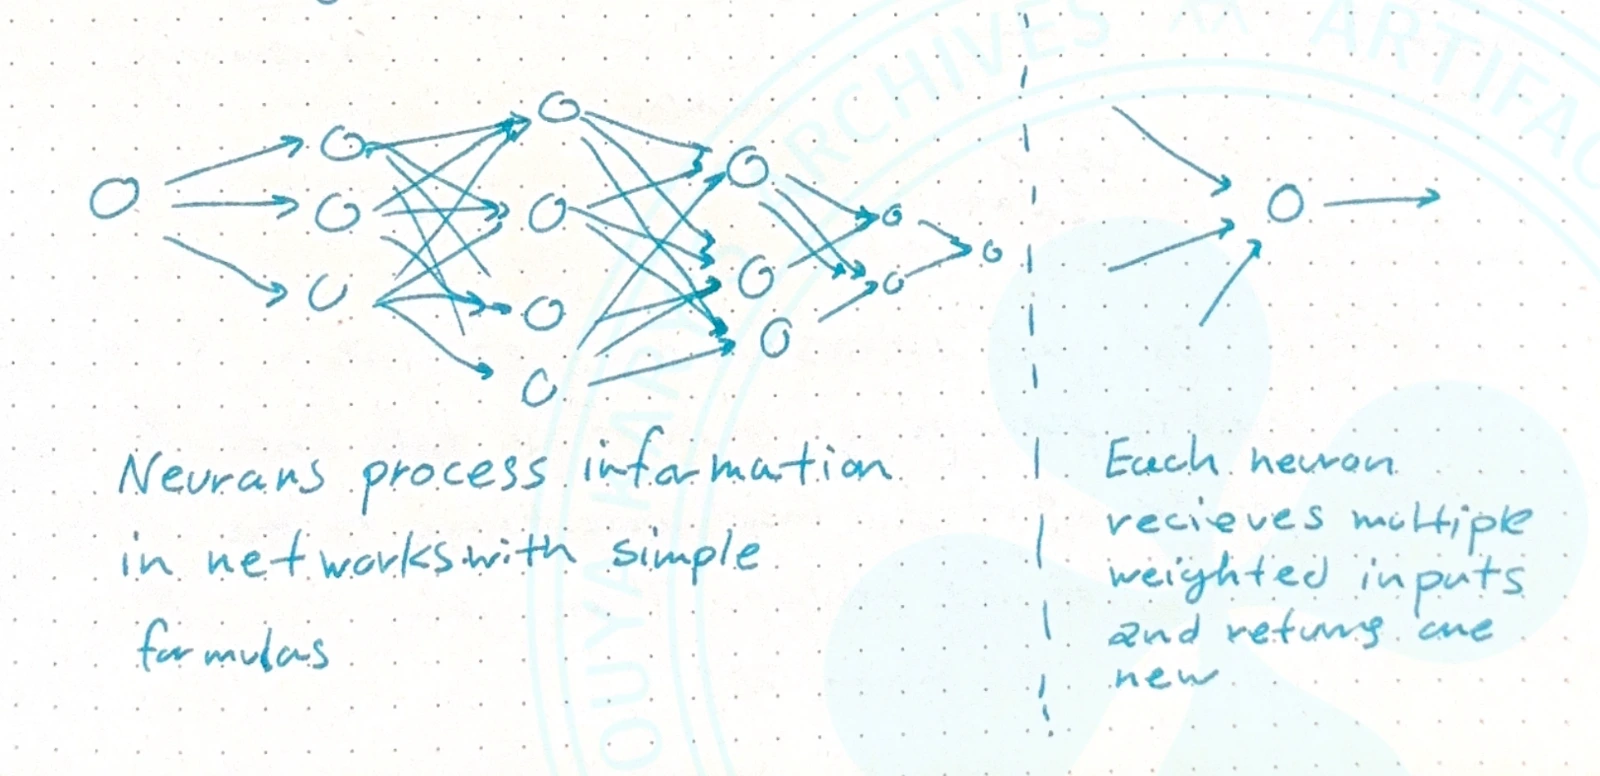 Neurans process information
in networks with simple
formulas
Each neuron
recieves multiple
weighted inputs
and returns one
new
ARCHIVES XX ARTIFAC
OUYA KARD